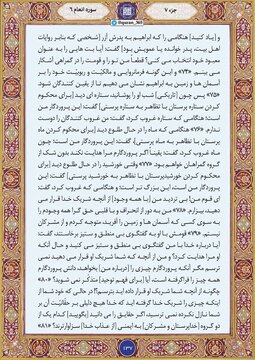 جزء ۷
سوره انعام ۶
@quran_365
و [یاد کنید] هنگامی را که ابراهیم به پدرش آزر [شخصی که بنابر روایات
اهل بیت، پدر خوانده یا عمویش بود] گفت: آیا بت هایی را به عنوان
معبود خود انتخاب می کنی؟ قطعاً من تو و قومت را در گمراهی آشکار
می بینم. «۷۴» و این گونه فرمانروایی و مالکیت و ربوبیّت خود را بر
آسمان ها و زمین به ابراهیم نشان می دهیم تا از یقین کنندگان شود.
«۷۵» پس چون [تاریکی] شب او را پوشانید، ستاره ای دید [برای محکوم
کردن ستاره پرستان با تظاهر به ستاره پرستی] گفت: این پروردگار من
است؛ هنگامی که ستاره غروب کرد، گفت: من غروب کنندگان را دوست
ندارم. «۷۶» هنگامی که ماه را در حال طلوع دید [برای محکوم کردن ماه
پرستان با تظاهر به ماه پرستی]، گفت: این پروردگار من است؛ چون
ماه غروب کرد، گفت: یقیناً اگر پروردگارم مرا هدایت نکند بدون شک از
گروه گمراهان خواهم بود. «۷۷» وقتی خورشید را در حال طلوع دید [برای
محکوم کردن خورشیدپرستان با تظاهر به خورشید پرستی] گفت: این
پروردگار من است، این بزرگ تر است؛ و هنگامی که غروب کرد، گفت:
ای قوم من! بی تردید من [با همه وجود] از آنچه شریک خدا قرار می
دهید، بیزارم. «۷۸» من به دور از انحراف و با قلبی حق گرا همه وجودم را
به سوی کسی که آسمان ها و زمین را آفرید، متوجه کردم و از مشرکان
نیستم. «۷۹» قومش با او به گفتگوی بی منطق و ستیز برخاستند، گفت:
آیا درباره خدا با من گفتگوی بی منطق و ستیز می کنید و حال آنکه
او مرا هدایت کرد؟ و من از آنچه که شما شریک او قرار می دهید نمی
ترسم مگر آنکه پروردگارم چیزی را [درباره من] بخواهد، دانش پروردگارم
همه چیز را فراگرفته است، آیا [برای فهم توحید] متذکّر نمی شوید؟ «۸۰»
چگونه از آنچه شما شریک او قرار داده اید بترسم؟! در حالی که خود شما از
اینکه چیزی را شریک خدا گرفته اید که خدا هیچ دلیلی بر حقّانیت آن بر
شما نازل نکرده نمی ترسید، اگر حقایق را می دانید [بگویید] کدام یک از
دو گروه [خداپرستان و مشرکان] به ایمنی [از عذاب خدا] سزاوارترند؟ «۸۱»
۱۳۷